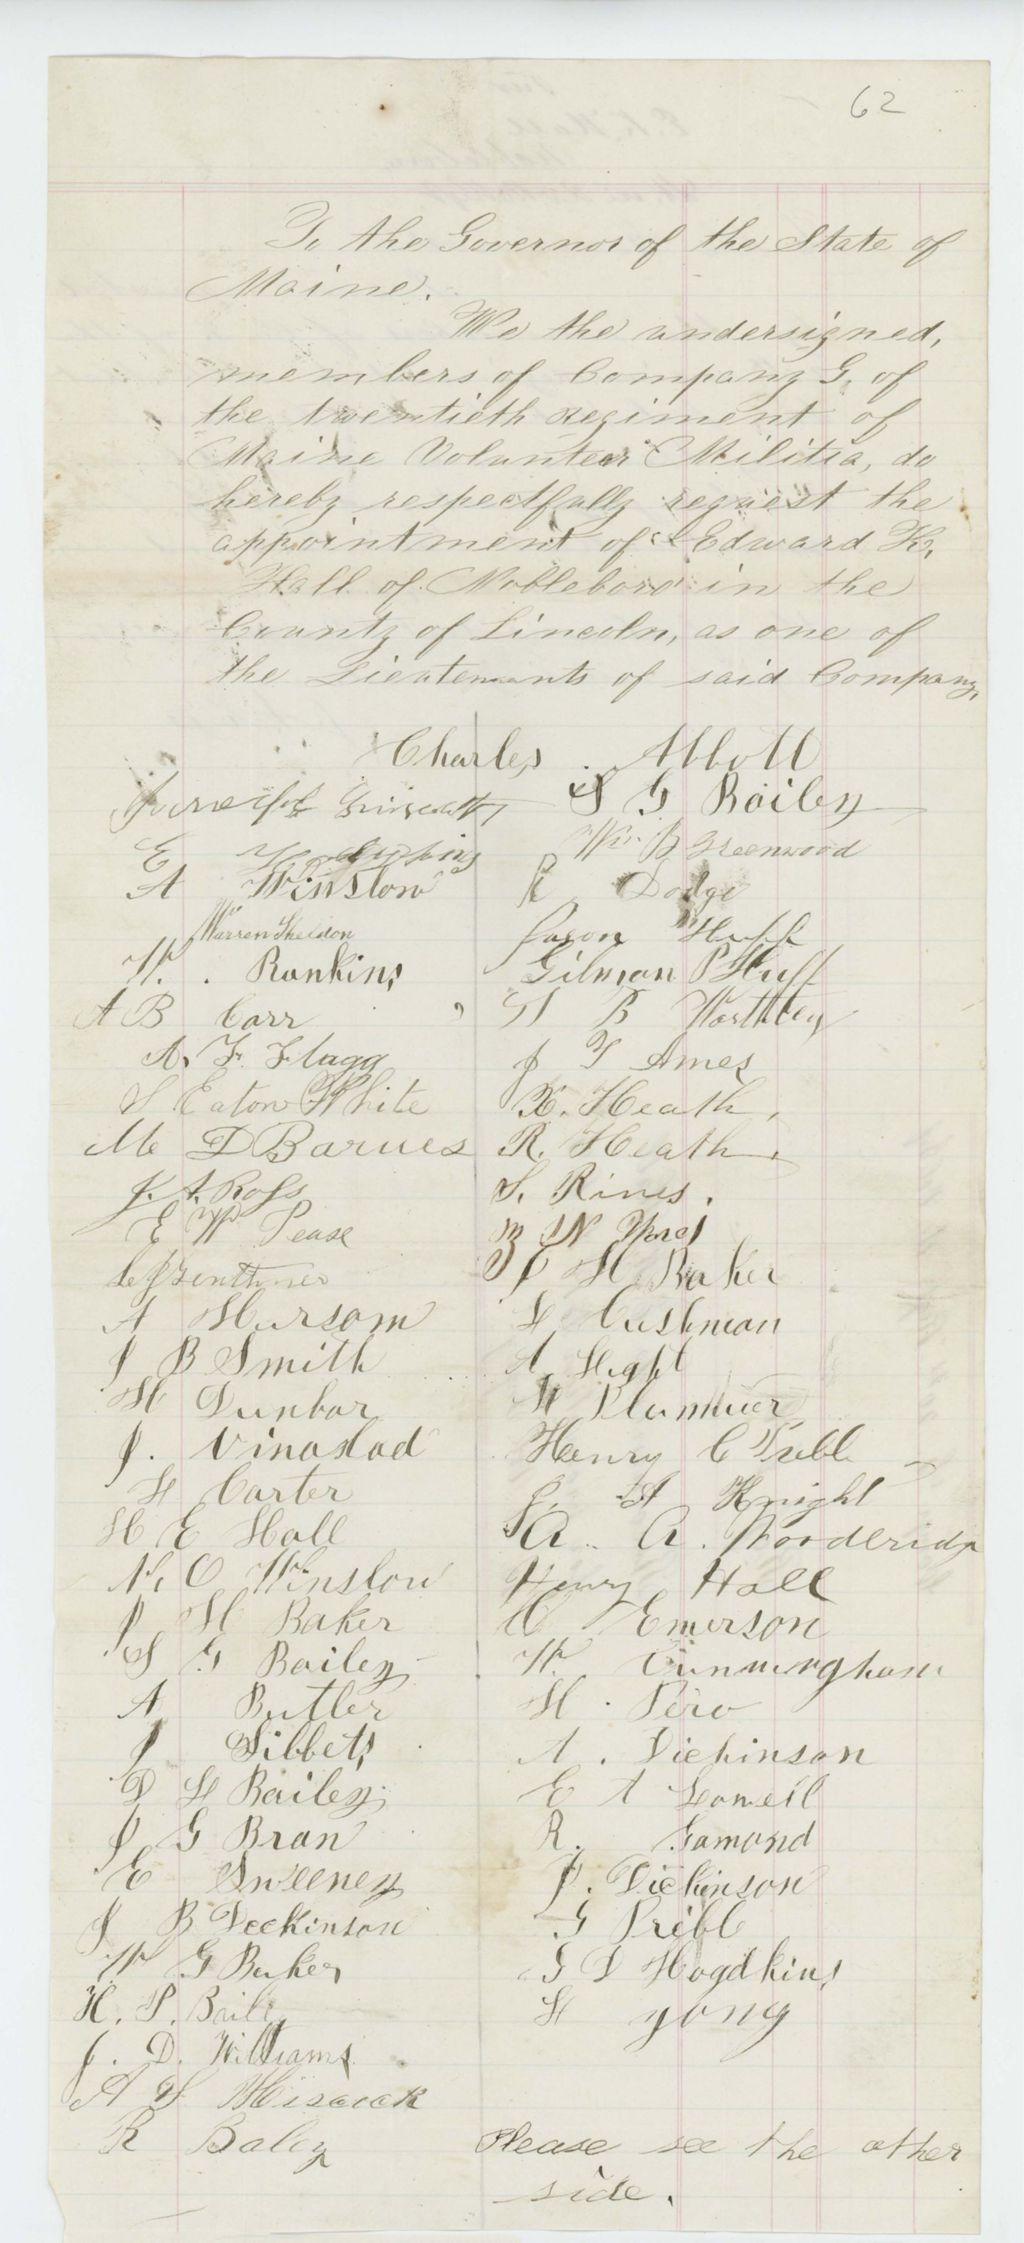 62
To the Governor of the State of
Maine.
We the undersigned,
members of Company G, of
the twentieth regiment of
Maine Volunteer Militia, do
hereby respectfully request the
appointment of Edward K.
Hall of Nobleboro in the
County of Lincoln, as one of
the Lieutenants of said Company,
Charles Abbott
S G Bailey
E
Wm B Greenwood
A Winslow
R Dodge
Warren Sheldon
Jason Huff
W. Rankins
Gilman P Huff
A B Carr
W B Worthley
A. F. Flagg
J T Ames
S Eaton White
X. Heath,
M D Barnes
R. Heath,
J. A. Ross
S. Rines.
E W Pease
A Hursom
J H Baker
J B Smith
L Cushman
H Dunbar
A Hight
J. Vinaslad
H Plummer
H Carter
Henry C Tribll
H E Hall
A Knight
N. O Winslow
A. A. Wooderidg
J H Baker
Henry Hall
S G Bailey
O Emerson
A Butler
W. Cunningham
J Sibbets
H. Pero
D H Bailey
A. Dickinson
J G Bran
E A Lowell
E Sweeney
R. Gamond
J B Deckinson
J. Dickinson
W G Baker
G Pribl
H. P. Baily
G D Hogdkins
J. D. Williams
H yong
A S Hiscock
R Baley
Please see the other
side.